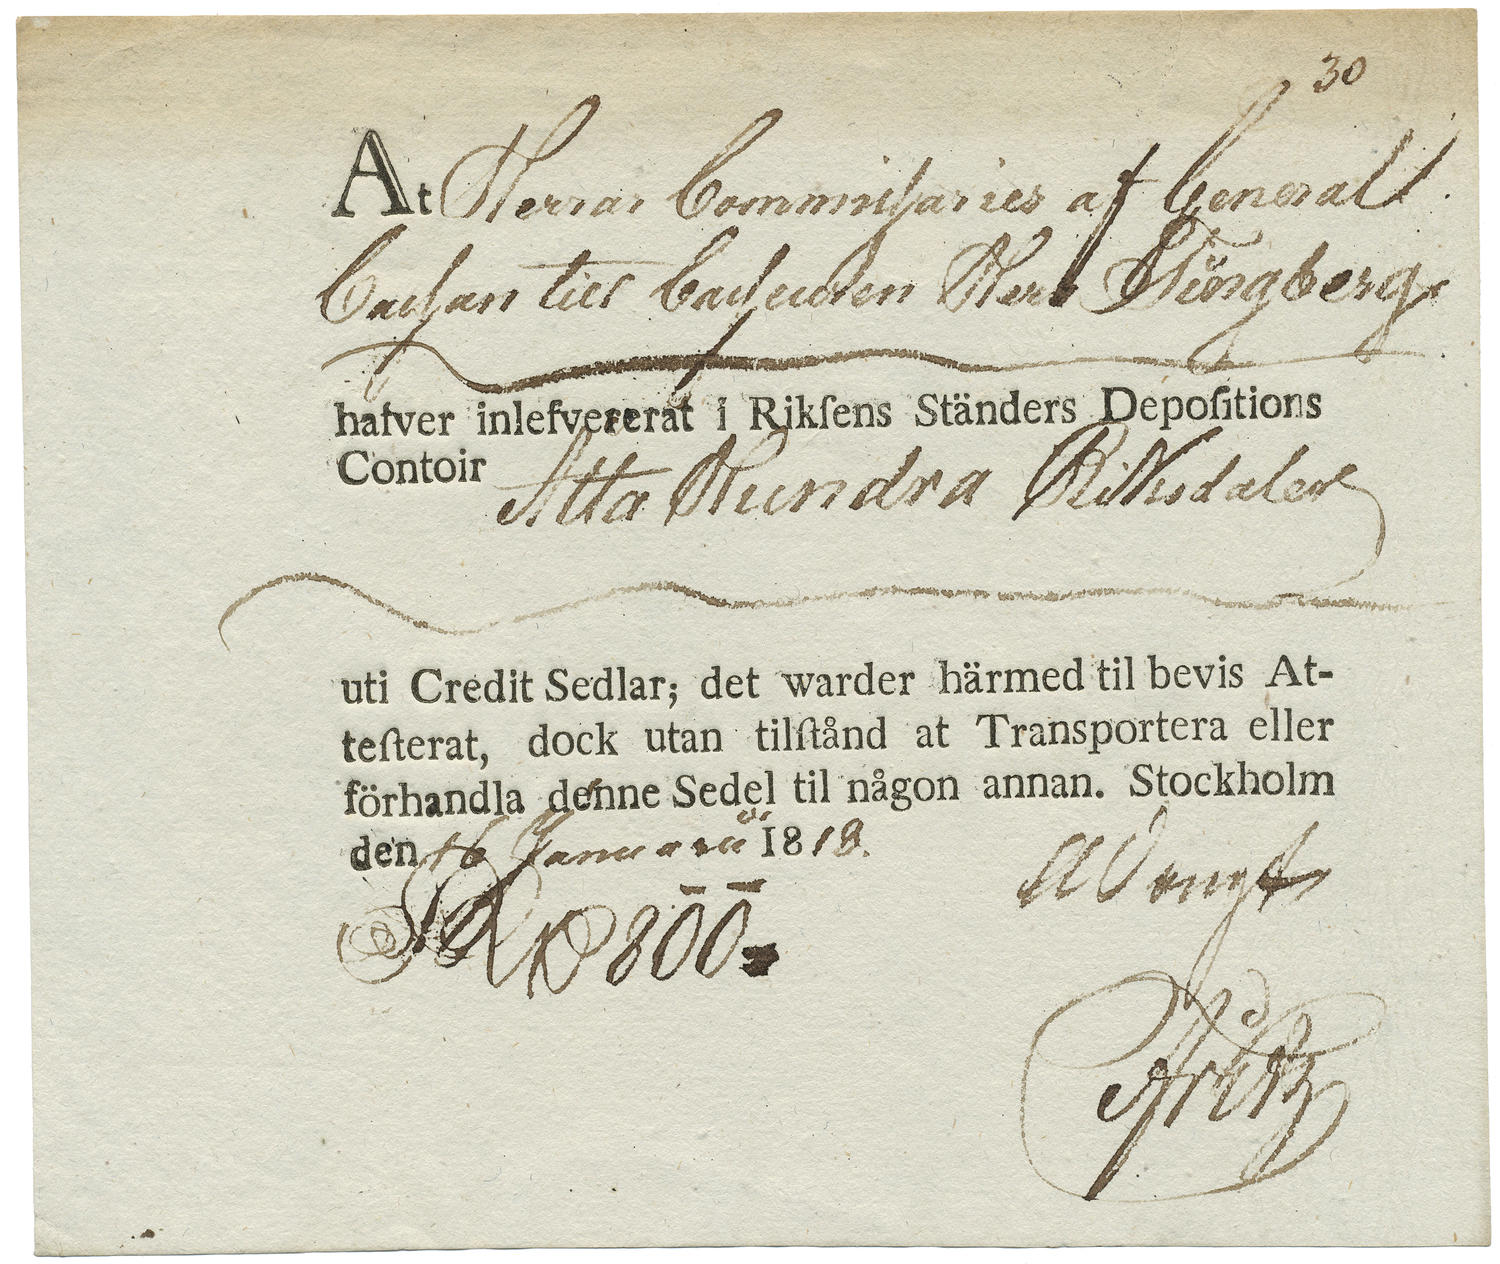 30
At Herrar Commissaries af General
Cassan til Casseuren Herr
hafver inlefvererat i Rikſens Ständers Depoſitions
Contoir Åtta Hundra Riksdaler
uti Credit Sedlar; det warder härmed til bevis At-
teſterat, dock utan tilſtånd at Transportera eller
förhandla denne Sedel til någon annan. Stockholm
den 16 Januarii 1818.
800